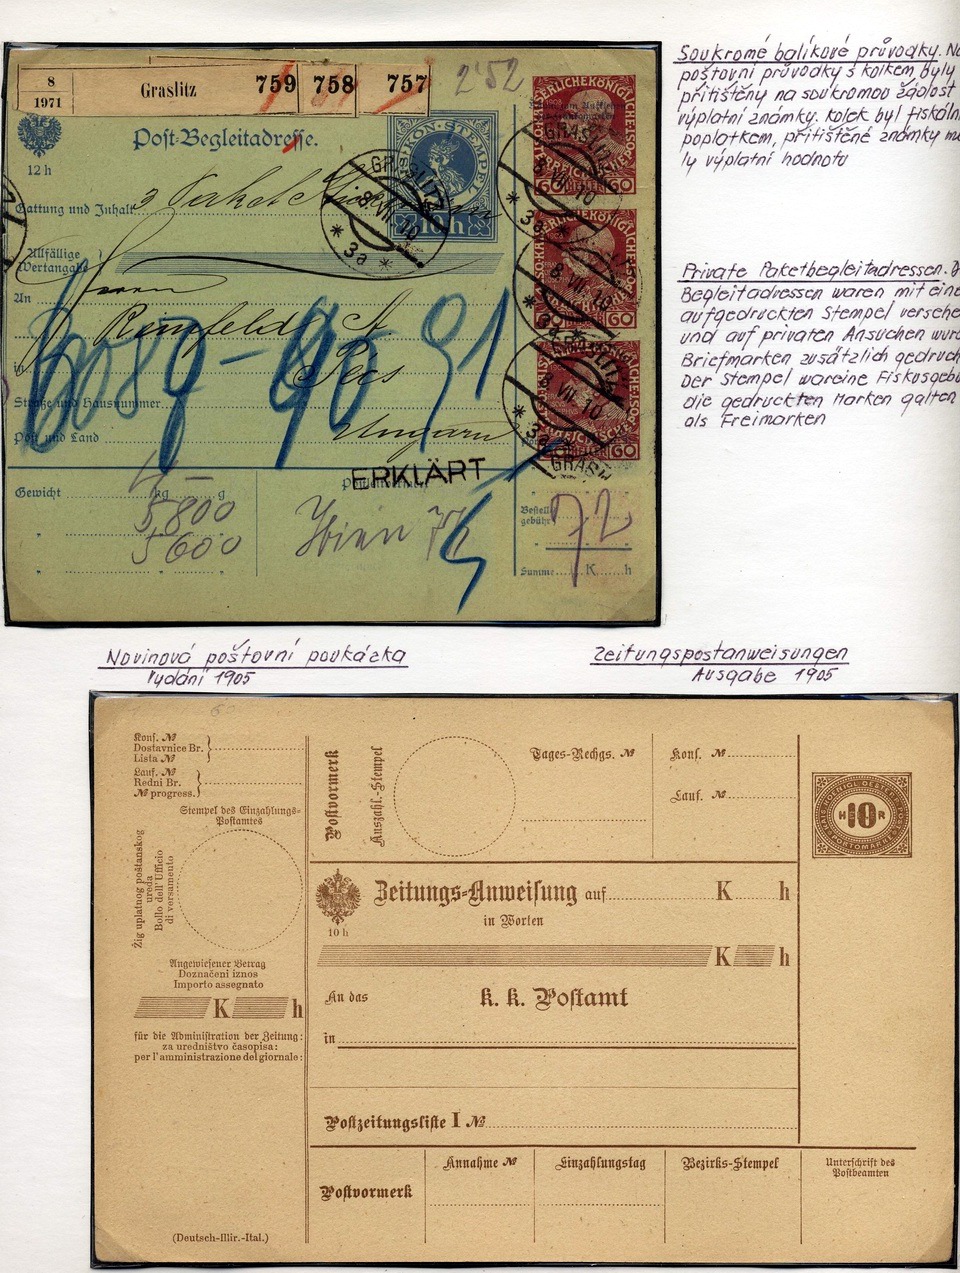 8
1971
Graslitz
759
758
757
2'52
Post-Begleitadresse.
12 h
10 h
Gattung und Inhalt
3
Allfällige
Wertangabe
An
Herrn
in
Pécs
Straße und Hausnummer
Post und Land
Ungarn
6089-90 91
ERKLÄRT
Gewicht
kg
g
5800
5600
Wien
Bestell-
gebühr
72
Summe
K
h
GRASLITZ
8 VII 10
* 3a *
60
60
60
Soukromé balíkové průvodky. Na
poštovní průvodky s kolkem byly
přitištěny na soukromou žádost
výplatní známky. Kolek byl fiskální
poplatkem, přitištěné známky mě
ly výplatní hodnotu
Private Paketbegleitadressen. D
Begleitadressen waren mit eine
aufgedruckten Stempel versehe
und auf privaten Ansuchen wurd
Briefmarken zusätzlich gedruck
Der Stempel wareine Fiskusgebü
die gedruckten Marken galten
als Freimarken
Novinová poštovní poukázka
vydání 1905
Zeitungspostanweisungen
Ausgabe 1905
Kons. №
Dostavnice Br.
Lista №
Lauf. №
Redni Br.
№ progress.
Stempel des Einzahlungs-
Postamtes
Žig uplatnog poštanskog
ureda
Bollo dell'Ufficio
di versamento
Angewiesener Betrag
Doznačeni iznos
Importo assegnato
K h
für die Administration der Zeitung:
za uredništvo časopisa:
per l'amministrazione del giornale:
(Deutsch-Illir.-Ital.)
Postvormerk
Auszahl.-Stempel
Tages-Rechgs. №
Kons. №
Lauf. №
H 10 R
10 h
Zeitungs-Anweisung auf K h
in Worten
K h
An das k. k. Postamt
in
Postzeitungsliste I №
Postvormerk
Annahme №
Einzahlungstag
Bezirks-Stempel
Unterschrift des
Postbeamten